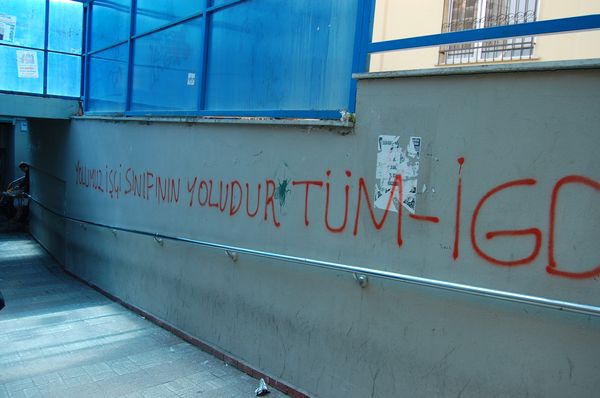 YOLUMUZ İŞÇİ SINIFININ YOLUDUR TÜM-İGD